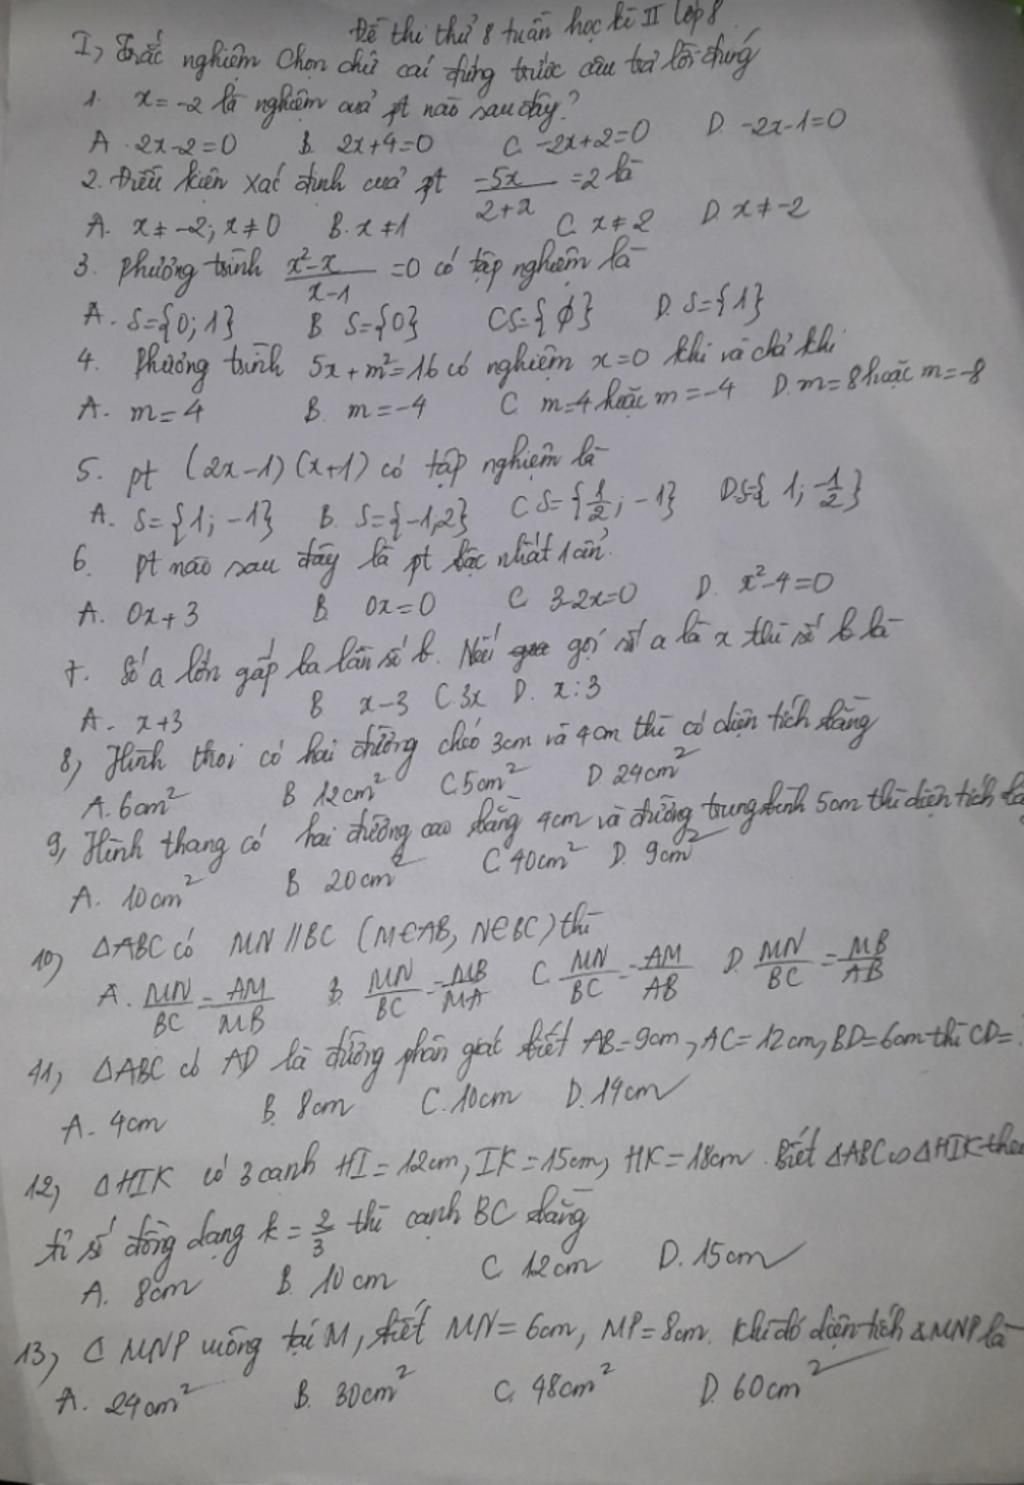 Đề thi thử 8 tuần học kì II lớp 8
I, Trắc nghiệm Chọn chữ cái đứng trước câu trả lời đúng
1. x = -2 là nghiệm của pt nào sau đây?
A. 2x-2=0 B. 2x+4=0 C. -2x+2=0 D. -2x-1=0
2. Điều kiện xác định của pt \frac{-5x}{2+x} =2 là
A. x≠-2; x≠0 B. x≠1 C. x≠2 D. x≠-2
3. Phương trình \frac{x²-x}{x-1} =0 có tập nghiệm là
A. S={0;1} B S={0} C S={∅} D. S={1}
4. Phương trình 5x+m²=16 có nghiệm x=0 khi và chỉ khi
A. m=4 B. m=-4 C m=4 hoặc m=-4 D. m=8 hoặc m=-8
5. pt (2x-1)(x+1) có tập nghiệm là
A. S={1;-1} B. S={-1;2} C S={\frac{1}{2};-1} D S={1;-\frac{1}{2}}
6. pt nào sau đây là pt bậc nhất 1 ẩn.
A. 0x+3 B. 0x=0 C 3-2x=0 D. x²-4=0
7. Số a lớn gấp ba lần số b. Nếu gọi số a là x thì số b là
A. x+3 B x-3 C. 3x D. x:3
8, Hình thoi có hai đường chéo 3cm và 4cm thì có diện tích bằng
A. 6cm² B 12cm² C. 5cm² D 24cm²
9, Hình thang có hai đường cao bằng 4cm và đường trung bình 5cm thì diện tích là
A. 10cm² B 20cm² C. 40cm² D. 9cm²
10, ΔABC có MN//BC (M∈AB, N∈BC) thì
A. \frac{MN}{BC} = \frac{AM}{MB} B. \frac{MN}{BC} = \frac{MB}{MA} C. \frac{MN}{BC} = \frac{AM}{AB} D. \frac{MN}{BC} = \frac{MB}{AB}
11, ΔABC có AD là đường phân giác biết AB=9cm, AC=12cm, BD=6cm thì CD=?
A. 4cm B. 8cm C. 10cm D. 14cm
12, ΔHIK có 3 cạnh HI=12cm, IK=15cm, HK=18cm. Biết ΔABC∽ΔHIK theo
tỉ số đồng dạng k=\frac{2}{3} thì cạnh BC bằng
A. 8cm B. 10cm C. 12cm D. 15cm
13, Δ MNP vuông tại M, biết MN=6cm, MP=8cm. Khi đó diện tích ΔMNP là
A. 24cm² B. 30cm² C. 48cm² D. 60cm²